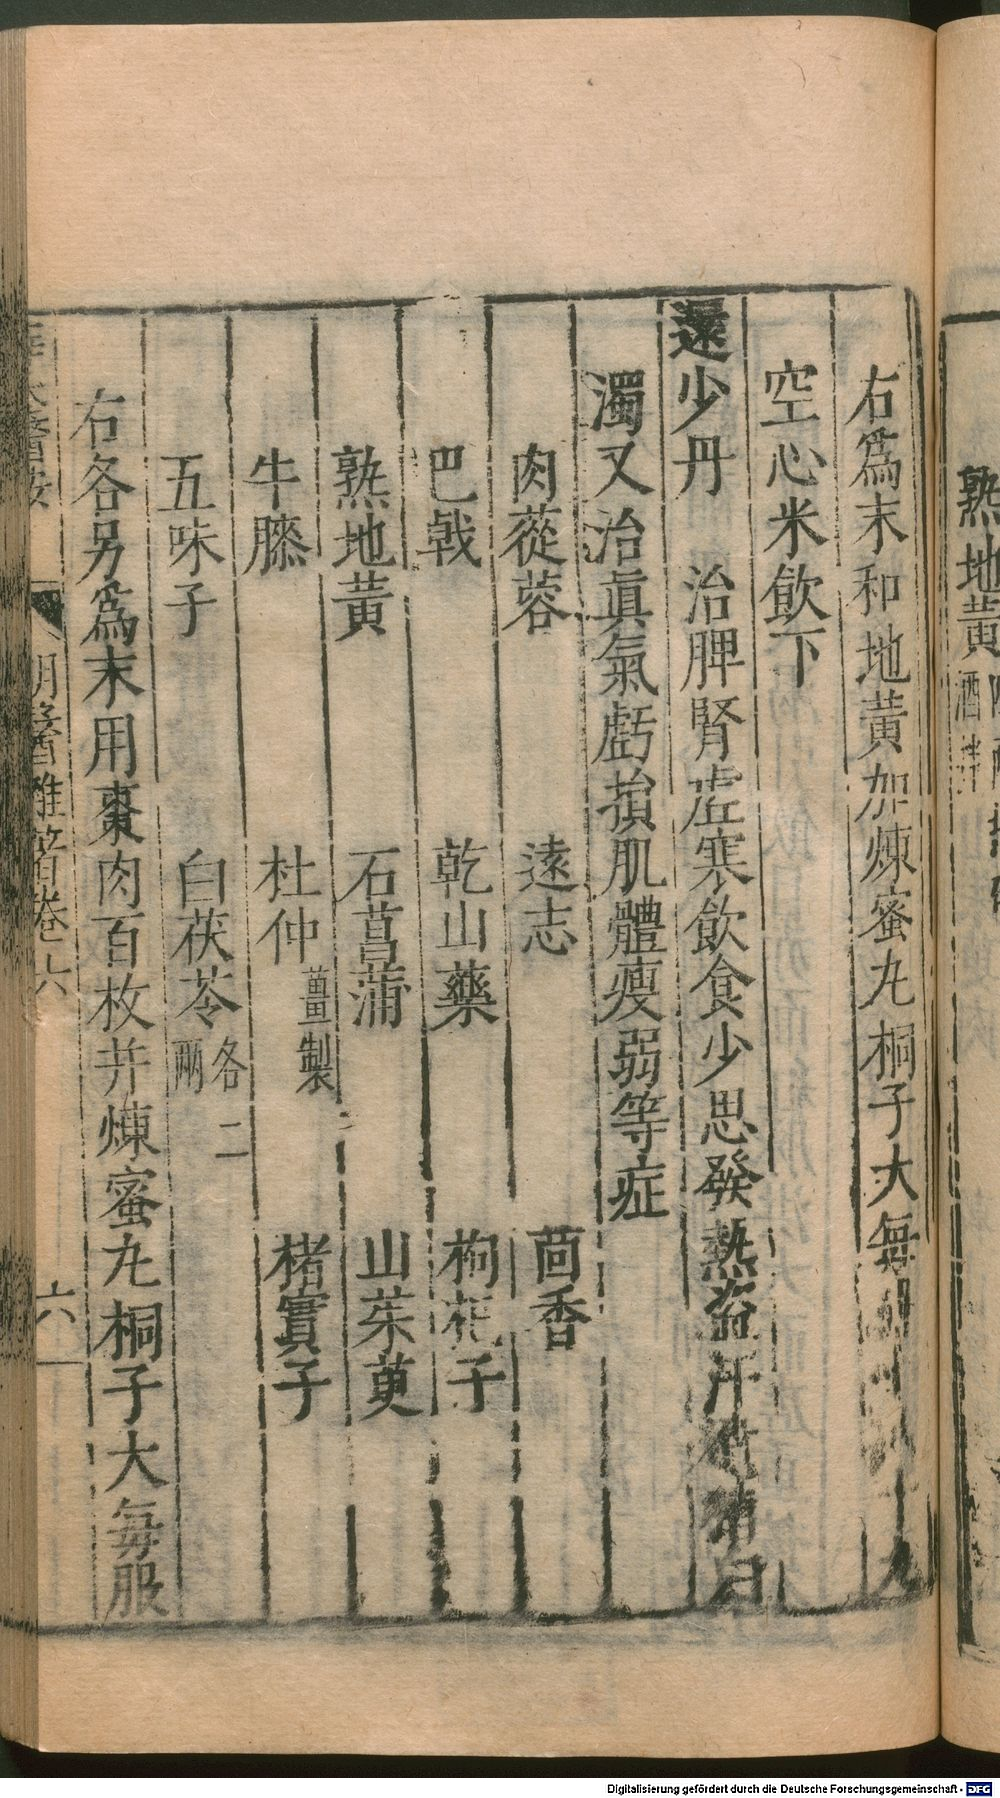 熟地黄酒拌
右爲末和地黄加煉蜜丸桐子大每服七八十丸
空心米飲下
還少丹 治脾腎虚寒飲食少思發熱盗汗遺精白
濁又治眞氣虧損肌體瘦弱等症
肉蓯蓉 遠志 茴香
巴戟 乾山藥 枸杞子
熟地黄 石菖蒲 山茱萸
牛膝 杜仲薑製 楮實子
五味子 白茯苓各二兩
右各另爲末用棗肉百枚并煉蜜丸桐子大每服
明醫雜著卷六 六
Digitalisierung gefördert durch die Deutsche Forschungsgemeinschaft - DFG